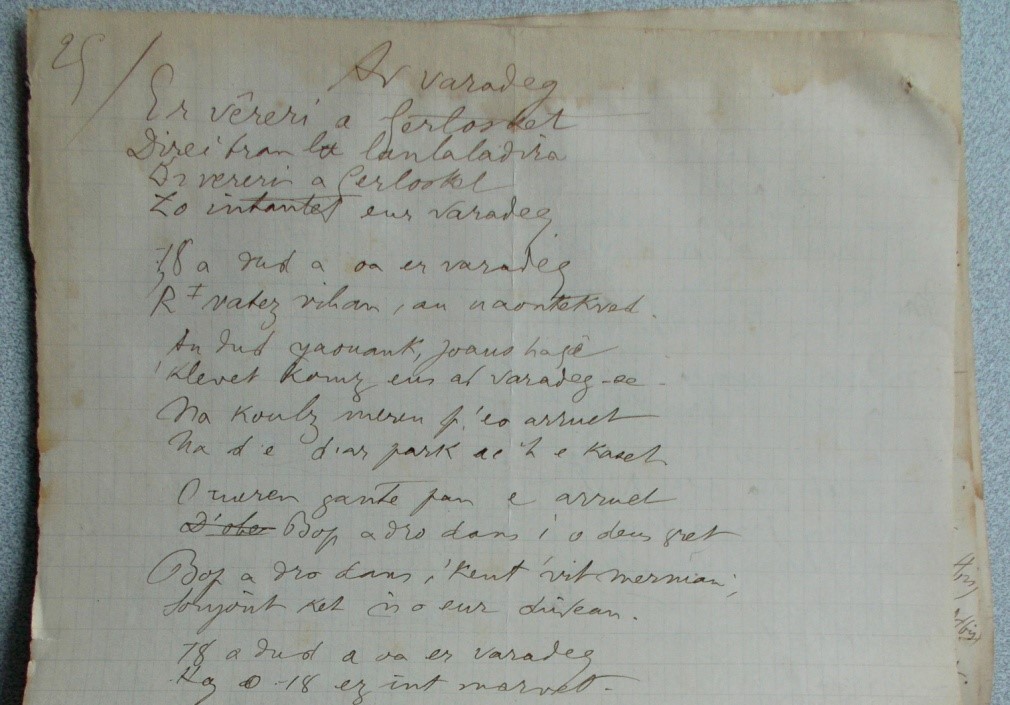 25 / Ar varadeg
Er vêreri a Gerlosket
Direitran la lanlaladira
Er vereri a Gerlosket
Zo intantet eur varadeg
78 a dud a oa er varadeg
vatez vihan, an naontekved.
An dud yaouank, joaus
'Klevet komz eus ar varadeg-se
Na koulz meren p'eo arruet
Na d e d'ar park ac'h e kaset
O meren gante pan e arruet
Bop a dro dans i o deus gret
Bop a dro dans, 'kent 'vit merniañ,
Sonjont ket
78 a dud a oa er varadeg
Hag o 18 ez int marvet.